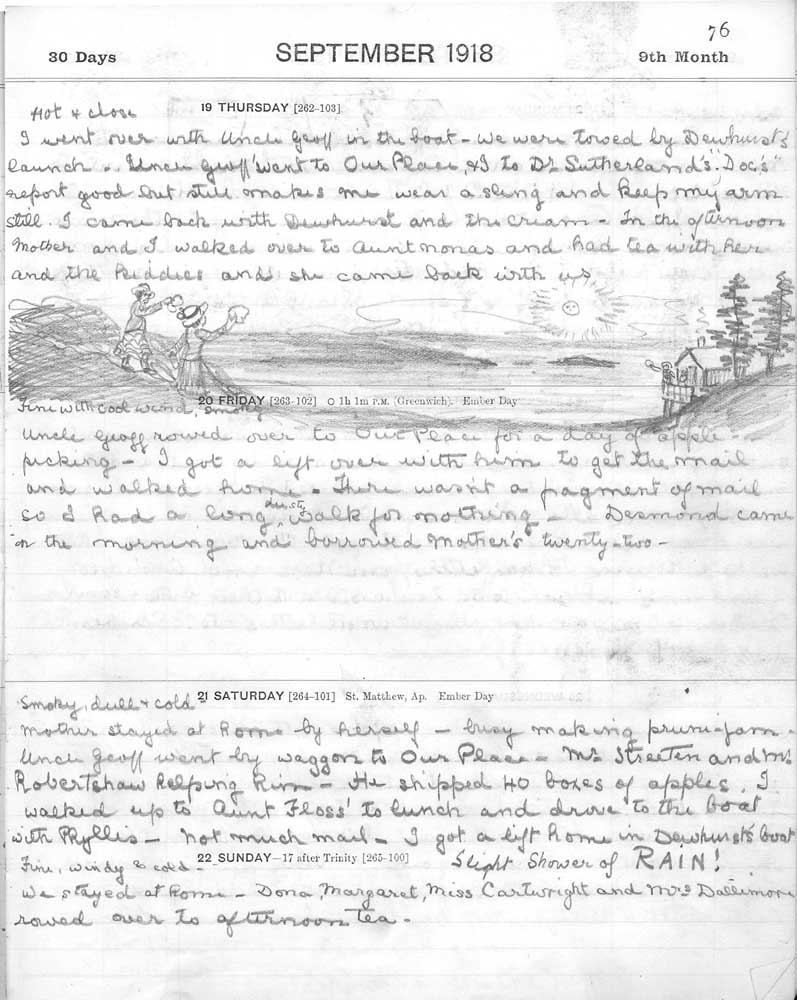 76
30 Days SEPTEMBER 1918 9th Month
Hot & close 19 THURSDAY [262-103]
I went over with Uncle Geoff in the boat - we were towed by Dewhurst's
launch - Uncle Geoff went to Our Place, & I to Dr Sutherland's. "Doc's"
report good but still makes me wear a sling and keep my arm
still. I came back with Dewhurst and the cream - In the afternoon
Mother and I walked over to Aunt Nonas and had tea with her
and the kiddies and she came back with us
20 FRIDAY [263-102] O 1h 1m P.M. (Greenwich). Ember Day
Fine with cool wind, smoky
Uncle Geoff rowed over to Our Place for a day of apple-
picking - I got a lift over with him to get the mail
and walked home - There wasn't a fragment of mail
so I had a long, dusty walk for nothing - Desmond came
in the morning and borrowed Mother's twenty-two -
Smoky, dull & cold 21 SATURDAY [264-101] St. Matthew, Ap. Ember Day
Mother stayed at home by herself - busy making prune-jam -
Uncle Geoff went by waggon to Our Place - Mr Streeten and Mr
Robertshaw helping him - He shipped 40 boxes of apples. I
walked up to Aunt Floss' to lunch and drove to the boat
with Phyllis - not much mail - I got a lift home in Dewhurst's boat
Fine, windy & cold - 22 SUNDAY-17 after Trinity [265-100] Slight Shower of RAIN!
We stayed at home - Dona, Margaret, Miss Cartwright and Mrs Dallimore
rowed over to afternoon tea -